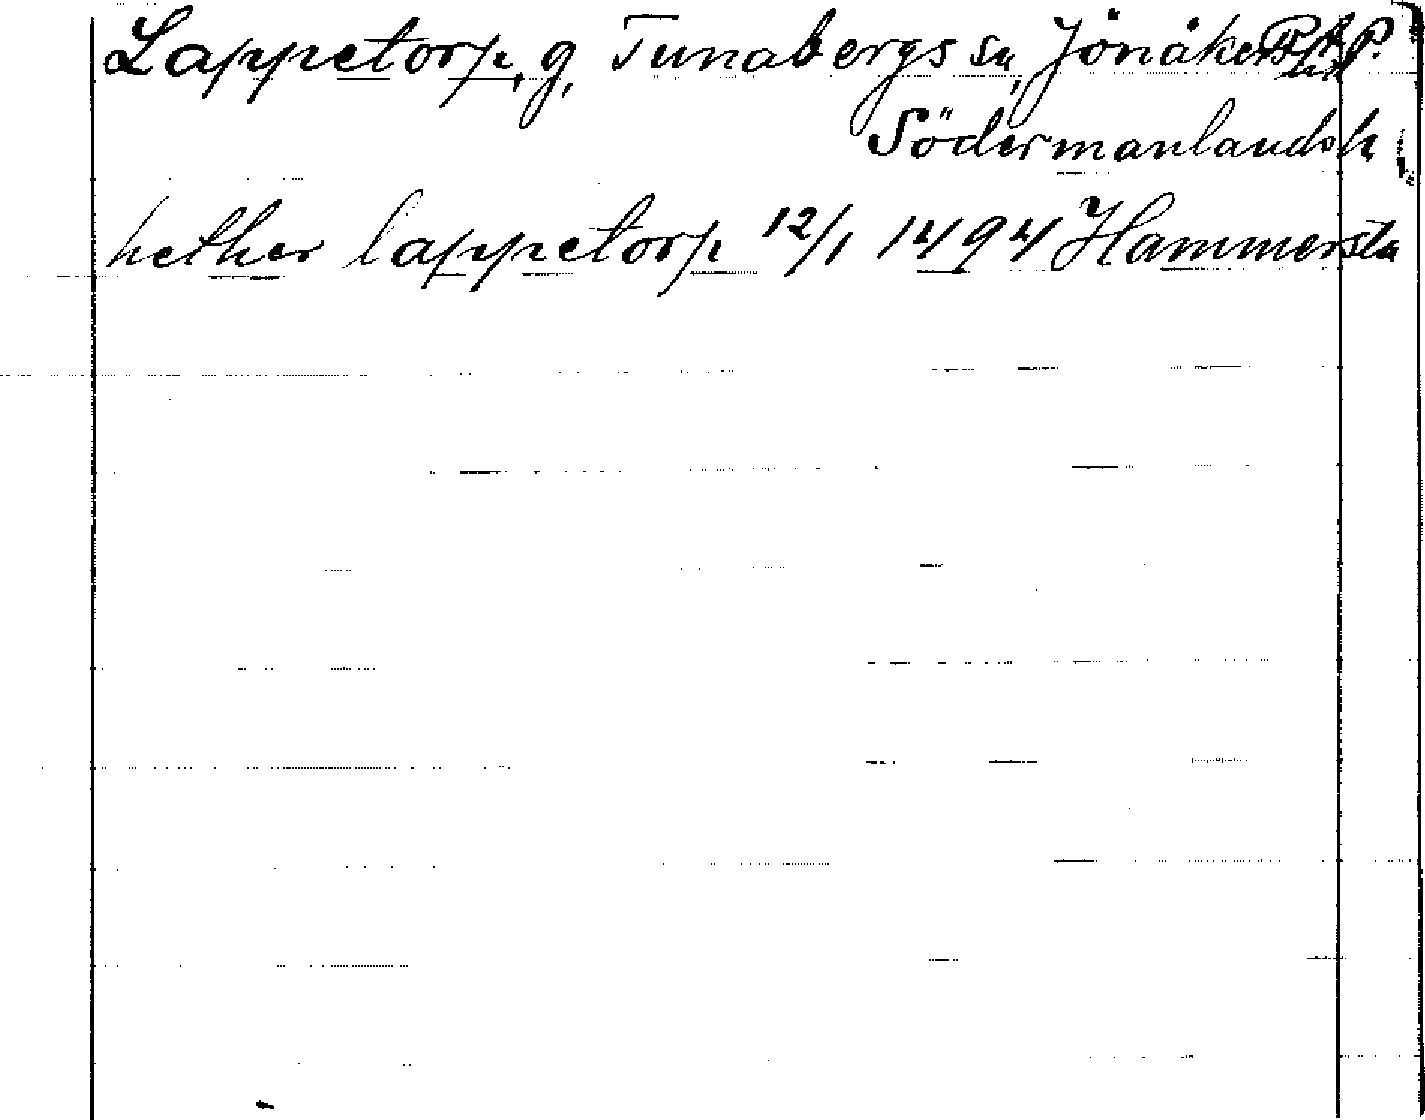 Lappetorp, g, Tunabergs sn, Jönåkers hd
Södermanlands h
hether lappetorp 12/1 1494 Hammersta